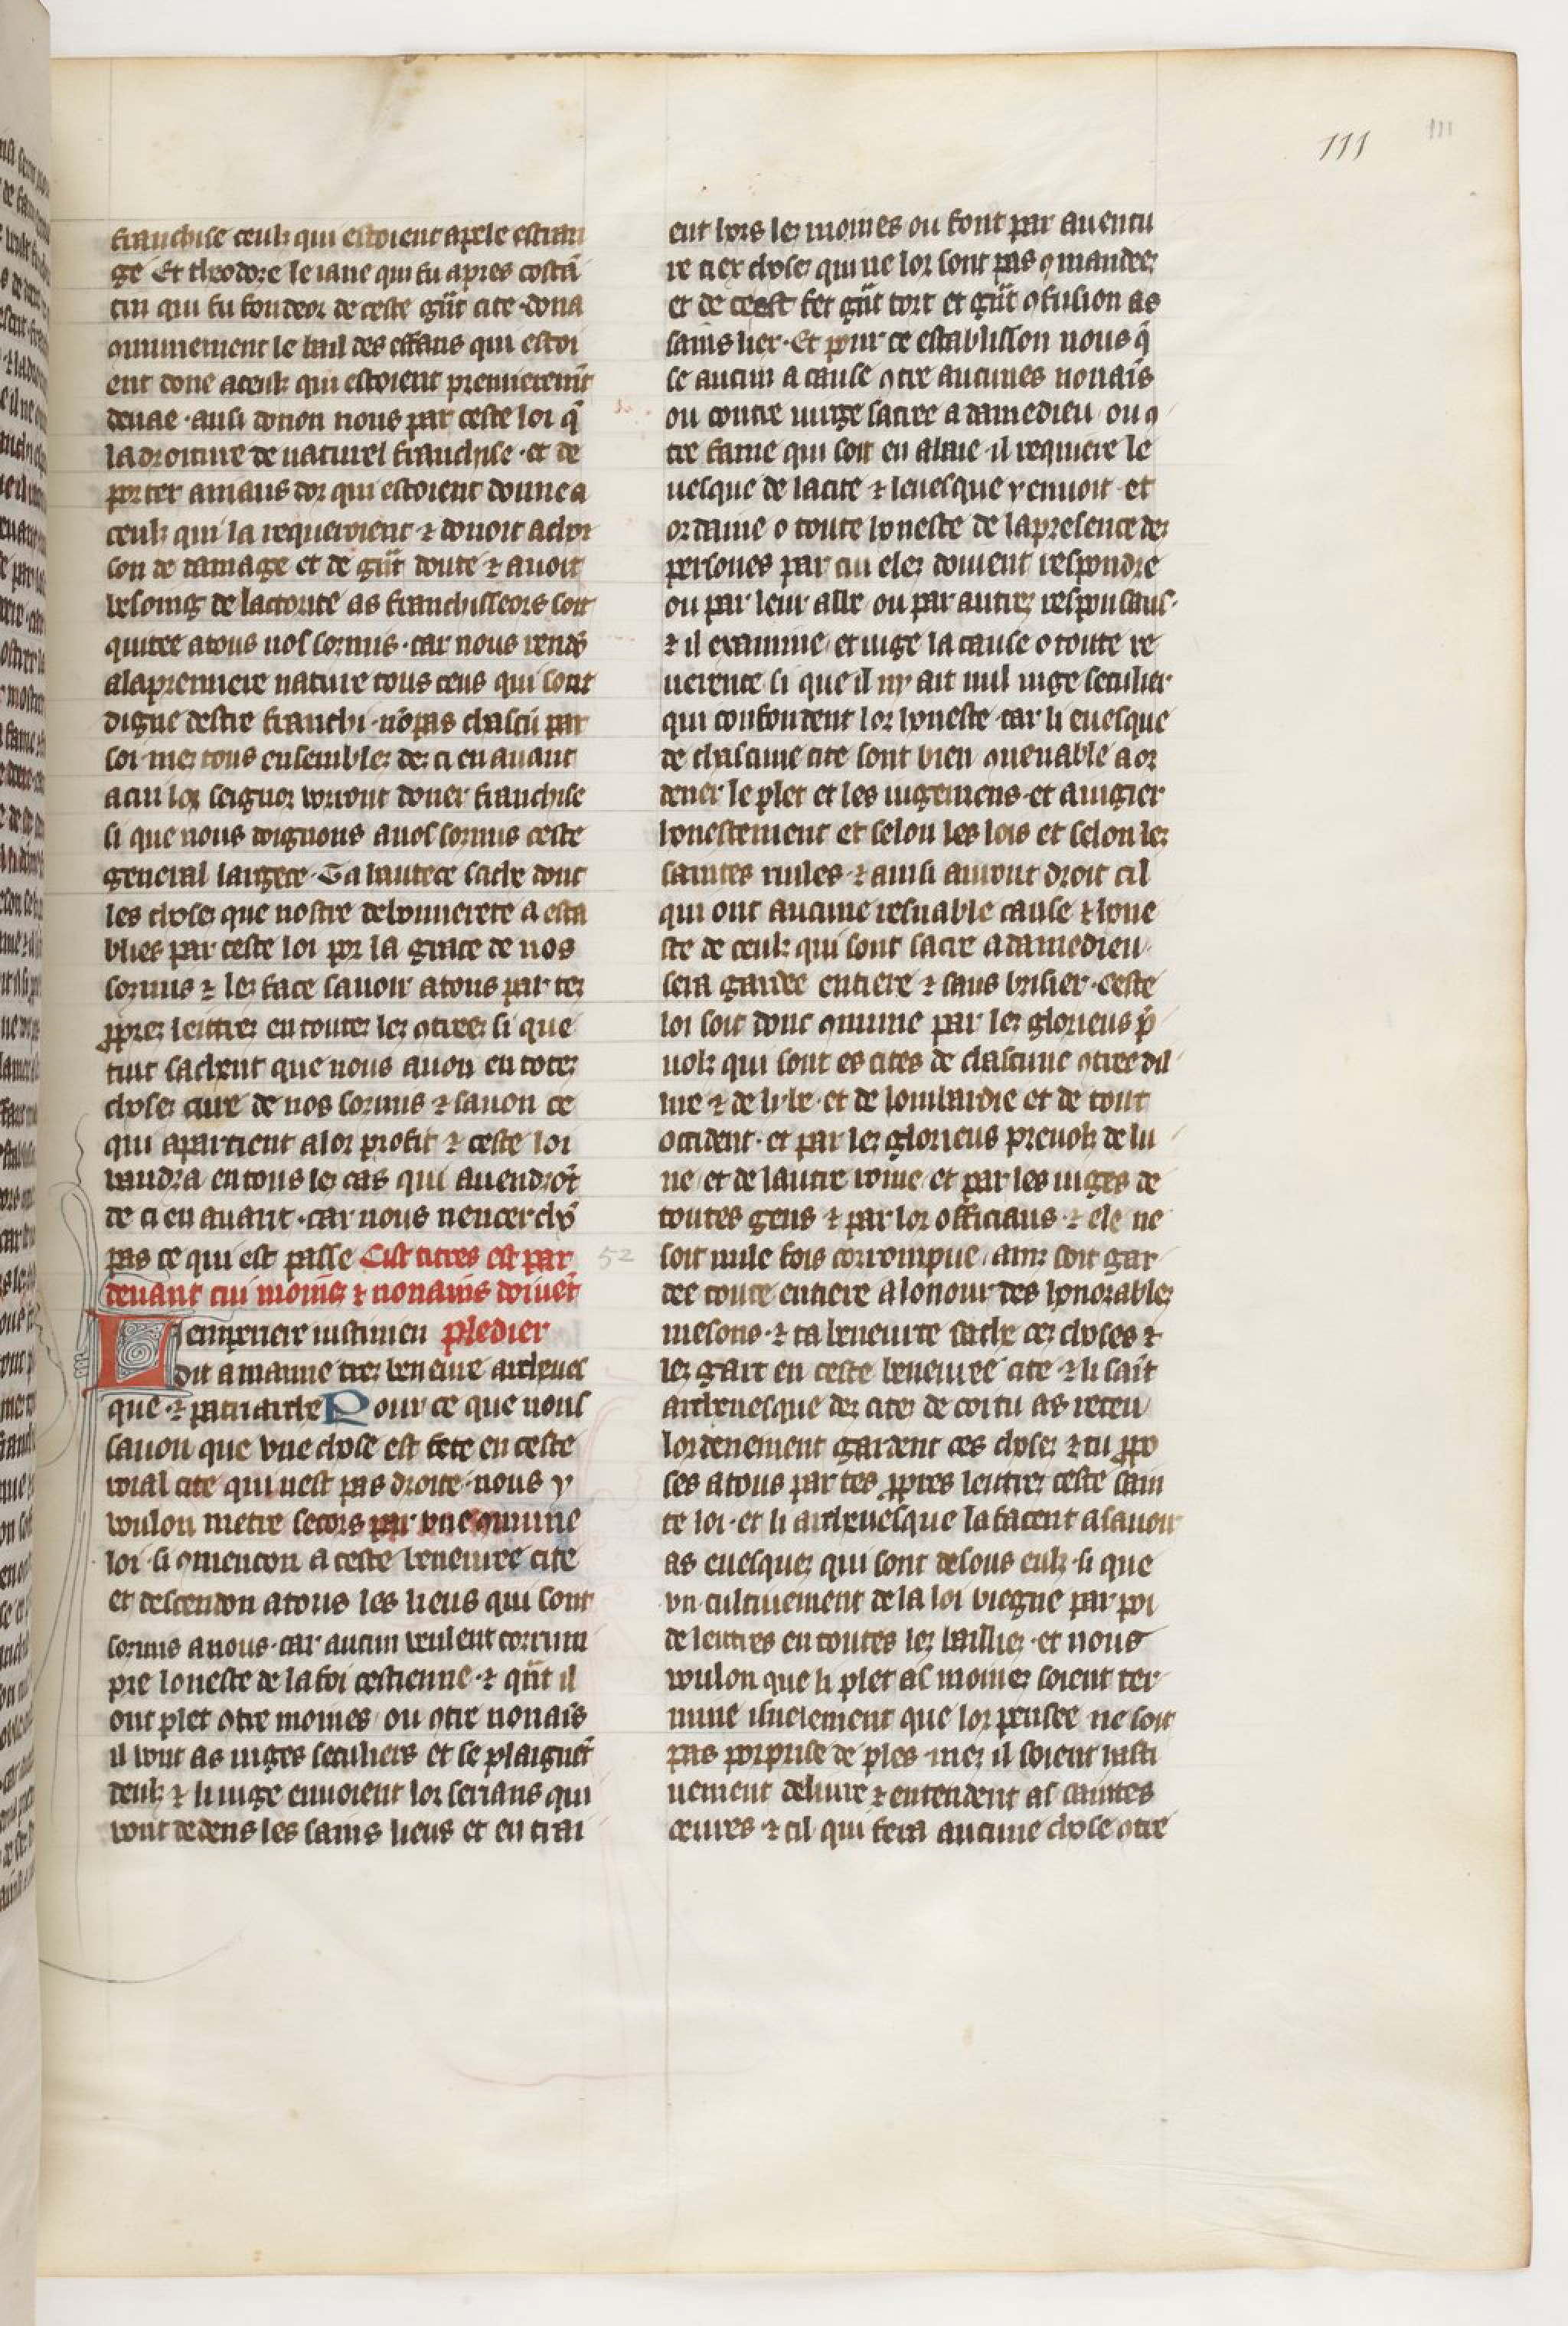 111
111
franchise ceulz qui estoient apele estran
ge Et theodore le iane qui fu apres costã
tin qui fu fondeor de ceste gñt cite · dona
ꝯmunement le bail des effans qui estoi
ent done a ceulz qui estoient premieremt̃
deuãt · ausi donon nous par ceste loi q̃
la droiture de naturel franchise · et de
porter aniaus dor qui estoient donne a
ceulz qui la requeroient ⁊ donoit achoi
son de damage et de gñt doute ⁊ auoit
besoing de lactorite as franchisseors soit
quitee a tous nos sozmis · car nous rendõ
a la premiere nature tous ceus qui sont
digne destre franchi · nõ pas chascũ par
soi mez tous ensemblez dez ci en auant
a cui lor seignor vorront doner franchise
si que nous doignons a nos sozmis ceste
general largece · Ta hautece sache donc
les choses que nostre debonnerete a esta
blies par ceste loi por la grace de nos
sozmis ⁊ lez face sauoir a tous par tez
ꝓprez lettrez en toutez lez ꝯtreez si que
tuit sachent que nous auon en totez
chosez cure de nos sozmis ⁊ sauon ce
qui apartient a lor profit ⁊ ceste loi
vaudra en tous lez cas qui auendrõt
de ci en auant · car nous nencerchõ
pas ce qui est passe Cist titres est par
deuant cui moinez ⁊ nonains doiuẽt
Lempereir iustinien pledier
dit a manne trez beneure archeues
que · ⁊ patriarche Pour ce que nous
sauon que vne chose est fete en ceste
roial cite qui nest pas droite · nous y
voulon metre secors par vne ꝯmune
loi · si ꝯmencon a ceste beneuree cite
et descendon a tous les lieus qui sont
sozmis a nous · car aucun veulent corrum
pre loneste de la foi crestienne · ⁊ qñt il
ont plet ꝯtre moines ou ꝯtre nonaĩs
il vont as iuges seculiers et se plaignẽt
deulz ⁊ li iuge enuoient lor serians qui
vont dedens les sains lieus et en trai
52
ent hors lez moines ou font par auentu
re tiex chosez qui ne lor sont pas ꝯmandeez
et de ce est fet gñt tort et gñt ꝯfusion as
sains liex · Et pour ce establisson nous q̃
se aucun a cause ꝯtre aucunes nonaĩs
ou contre uirge sacree a damedieu ou ꝯ
tre fame qui soit en alaie il requiere le
uesque de la cite ⁊ leuesque y enuoit · et
ordaine o toute honeste de la presence dez
persones par cui elez doiuent respondre
ou par leur asse ou par autrez responsaus ·
⁊ il examine et iuge la cause o toute re
uerence si que il ny ait nul iuge seculier
qui confondent lor honeste · car li euesque
de chascune cite sont bien ꝯuenable a or
dener le plet et les iugemens · et a iugier
honestement et selon les lois et selon lez
saintes riules · ⁊ ainsi auront droit cil
qui ont aucune resnable cause ⁊ lone
ste de ceulz qui sont sacre a damedieu
sera gardee entiere ⁊ sans brisier · Ceste
loi soit donc ꝯmune par lez glorieus p̃
uolz qui sont es cites de chascune ꝯtree dil
me ⁊ de libe · et de lombardie et de tout
occident · et par lez glorieus preuolz de lu
ne et de lautre rome et par les iuges de
toutes gens ⁊ par lor officiaus · ⁊ ele ne
soit nule fois corrompue · ainz soit gar
dee toute entiere a lonour des honorablez
mesons · ⁊ ta beneurte sache cez choses ⁊
lez gart en ceste beneuree cite · ⁊ li saĩt
archeuesque dez citez de coi tu as receu
lordenement gardent ces chosez ⁊ tu ꝓpo
ses a tous par tes ꝓpres lettrez ceste sain
te loi · et li archeuesque la facent a sauoir
as euesquez qui sont desous eulz · si que
vn cultiuement de la loi viegne par poi
de lettres en toutes lez bailliez · et nous
voulon que li plet as moinez soient ter
mine isnelement que lor pensee ne soit
pas porprise de ples · mez il soient hasti
uement deliure ⁊ entendent as saintes
œuures · ⁊ cil qui fera aucune chose ꝯtre